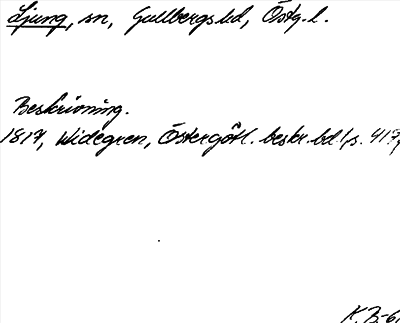 Ljung, sn, Gullbergs hd, Östg. l.
Beskrivning.
1817, Widegren, Östergötl. beskr. bd 1, s. 417,
K. B-61